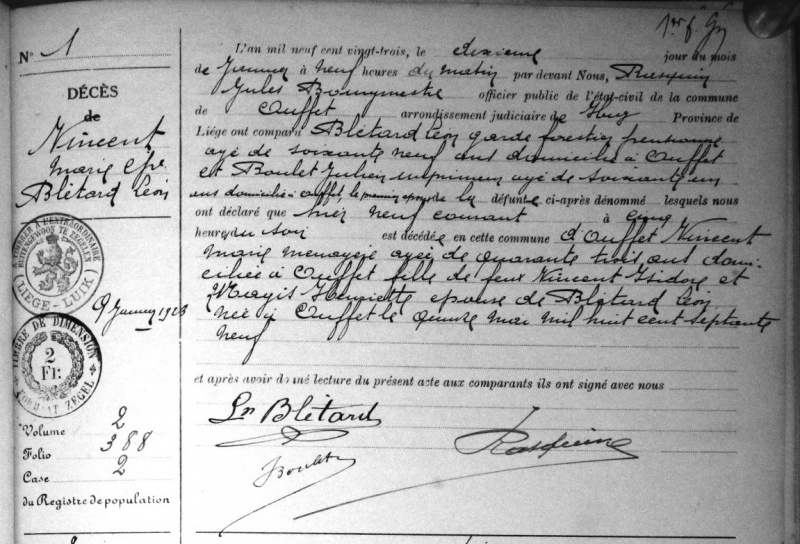 N° 1
DÉCÈS
de
Vincent
Marie épse
Blétard Léon
TIMBRE A L'EXTRAORDINAIRE
BUITENGEWOON TE ZEGELEN
LIÉGE - LUIK
9 Janvier 1923
TIMBRE DE DIMENSION
2
Fr.
FORMAAT ZEGEL
Volume 2
Folio 388
Case 2
du Registre de population
L'an mil neuf cent vingt-trois, le dixième jour du mois
de Janvier à neuf heures du matin par devant Nous, Rasquin
Jules Bourgmestre officier public de l'état-civil de la commune
de Ouffet arrondissement judiciaire de Huy Province de
Liége ont comparu Blétard Léon garde forestier pensionné
âgé de soixante neuf ans domicilié à Ouffet
et Boulet Julien âgé de soixante un
ans domicilié à Ouffet, le premier époux de la défunte ci-après dénommé lesquels nous
ont déclaré que hier neuf courant à cinq
heures du soir est décédée en cette commune d'Ouffet Vincent
Marie ménagère âgée de quarante trois ans domi-
ciliée à Ouffet fille de feux Vincent Isidore et
Magis Henriette épouse de Blétard Léon
née à Ouffet le quinze mai mil huit cent septante
neuf
et après avoir donné lecture du présent acte aux comparants ils ont signé avec nous
Ln Blétard
Rasquin
JBoulet